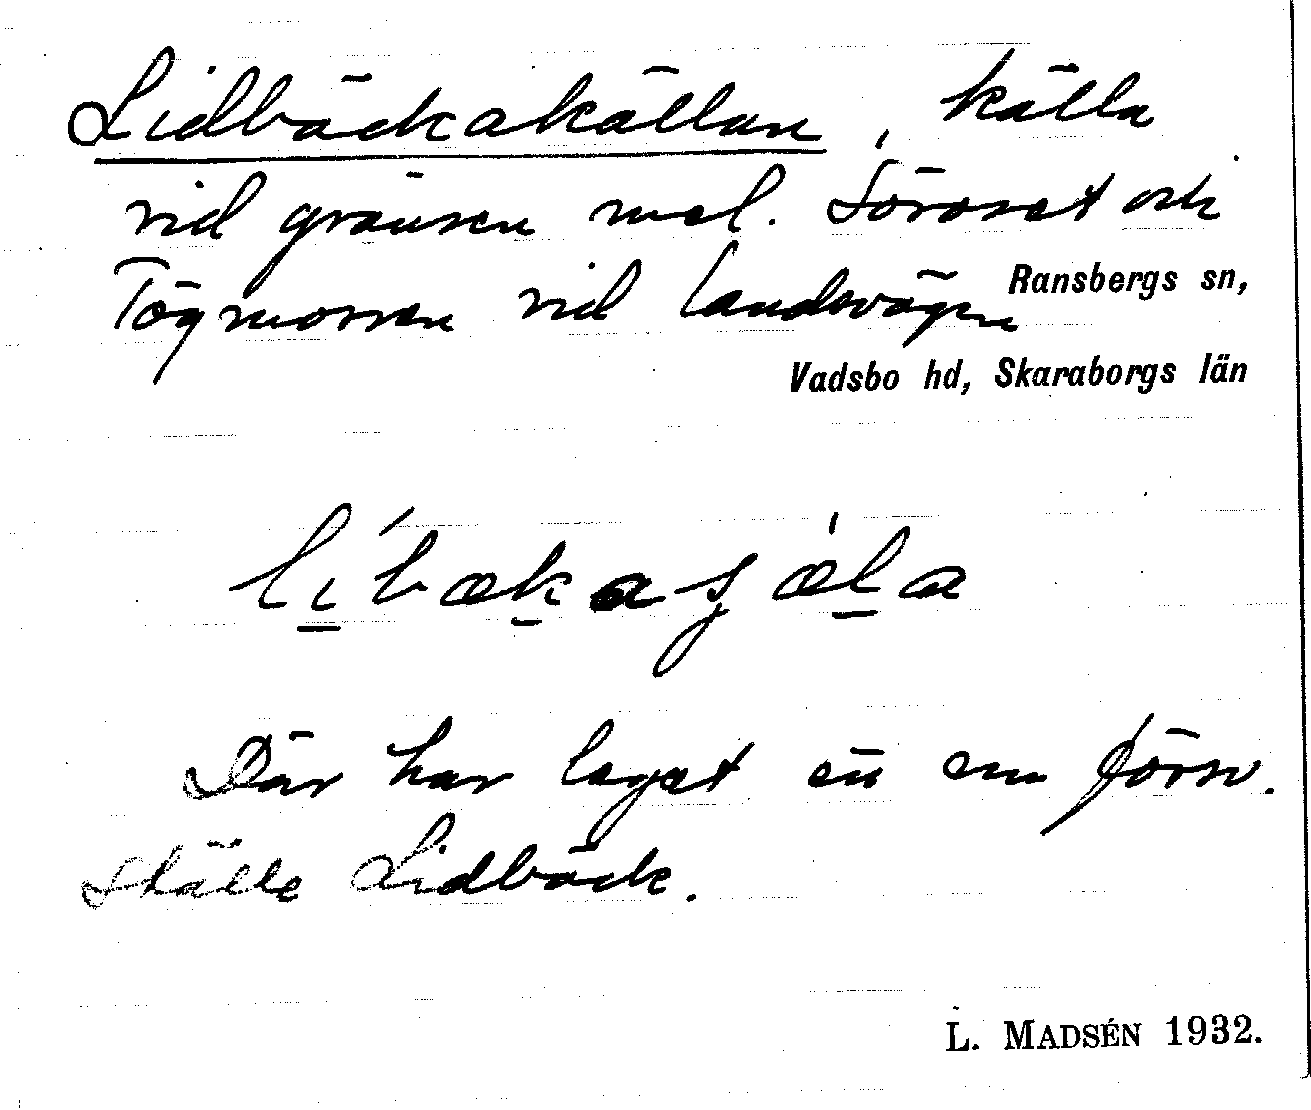 Lidbäckakällan, källa
vid gränsen mel. Söroset och
Tögmossen vid landsvägen
Ransbergs sn,
Vadsbo hd, Skaraborgs län
Där har leget en
ställe Lidbäck.
L. MADSÉN 1932.